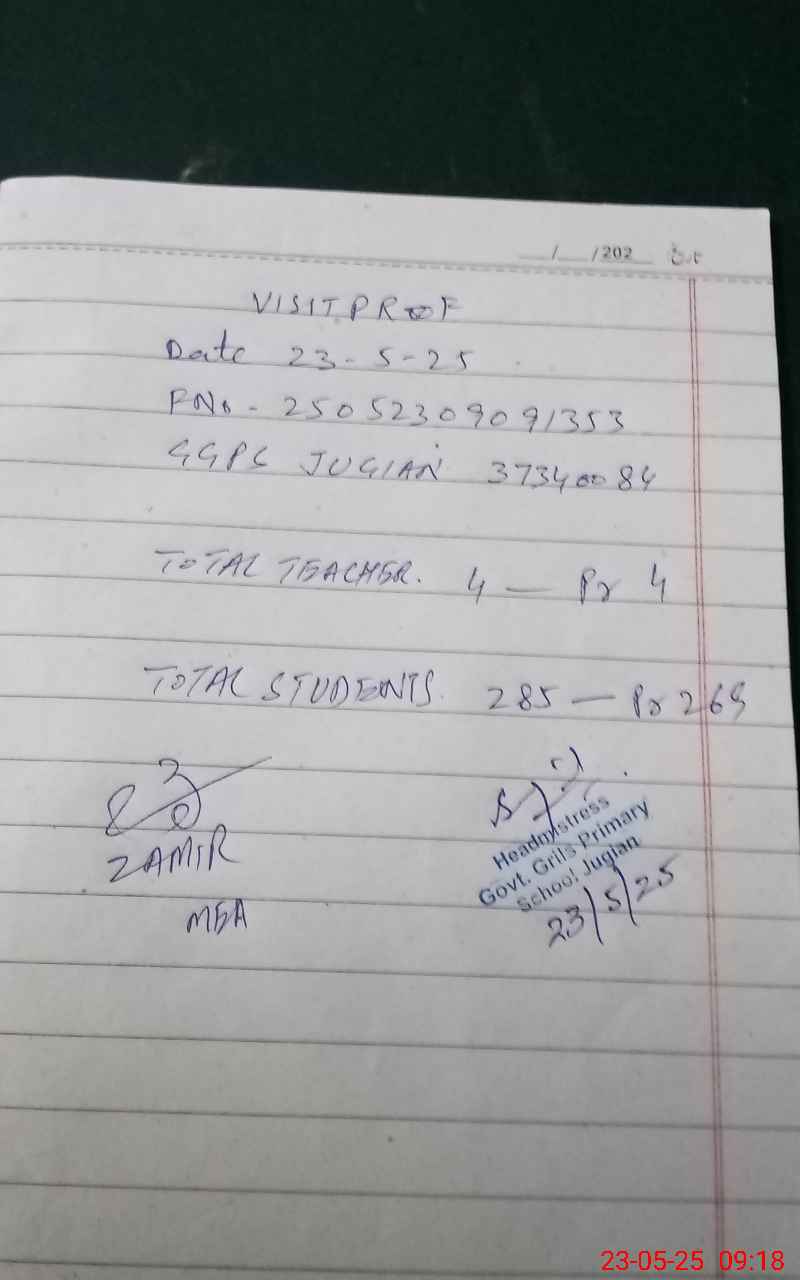 / /202
VISIT PROOF
Date 23-5-25
FNo - 25052309091353
GGPS JUGIAN 37340084
TOTAL TEACHER. 4 — Pr 4
TOTAL STUDENTS. 285 — Pr 269
ZAMIR
MEA
Headmistress
Govt. Grils Primary
School Jugian
23/5/25
23-05-25 09:18